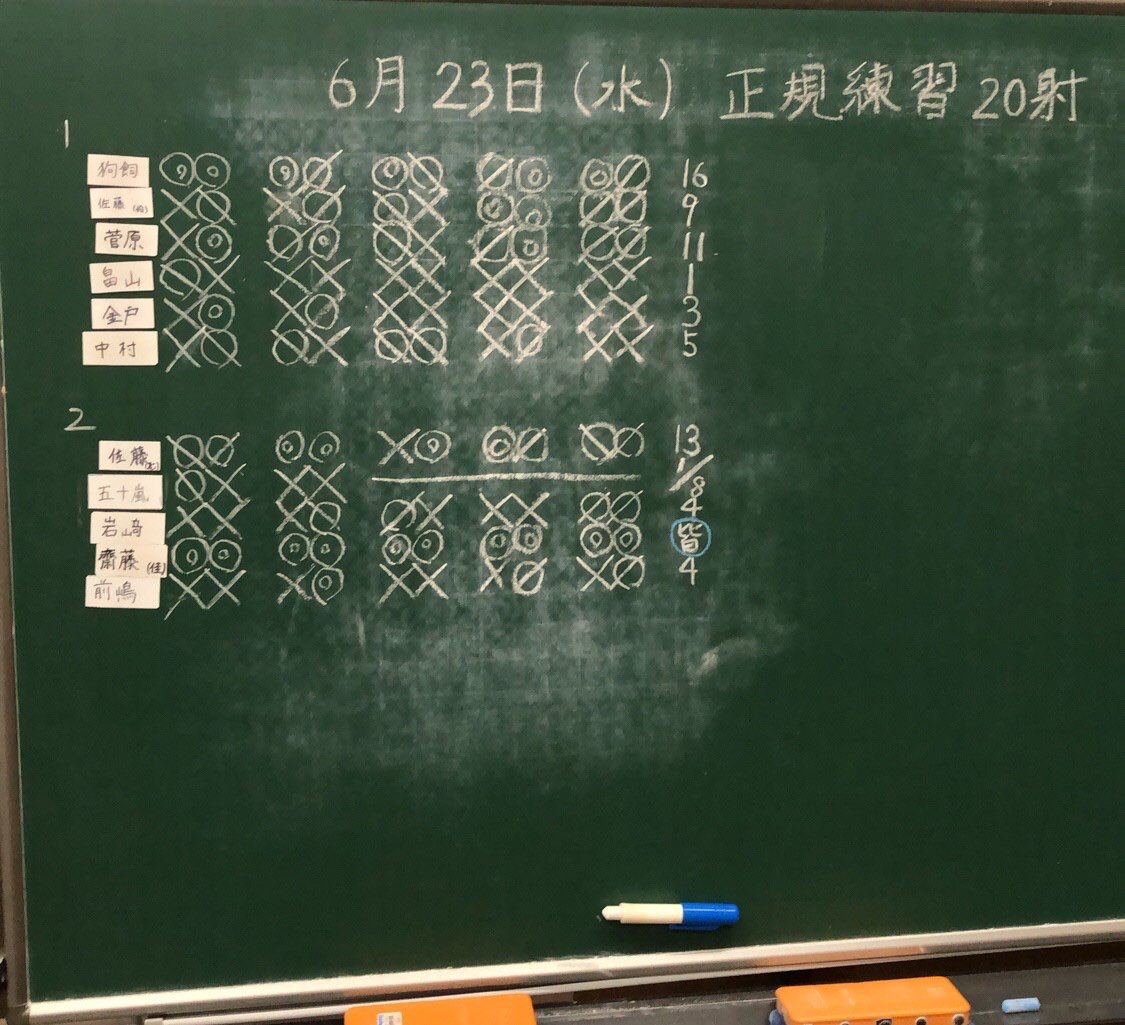 6月23日(水) 正規練習 20射
1
狗飼 16
佐藤 9
菅原 11
畠山 1
金戸 3
中村 5
2
佐藤 13
五十嵐 1/8
岩﨑 4
齋藤(佳) 皆
前嶋 4